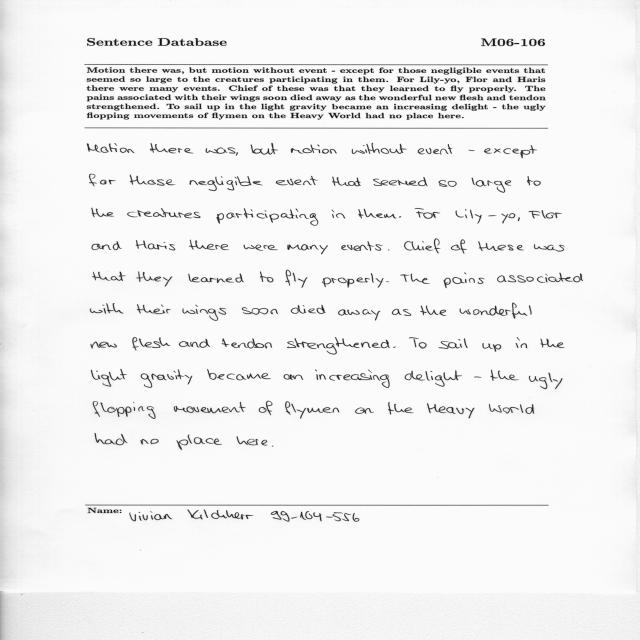 Sentence Database M06-106
Motion there was, but motion without event - except for those negligible events that
seemed so large to the creatures participating in them. For Lily-yo, Flor and Haris
there were many events. Chief of these was that they learned to fly properly. The
pains associated with their wings soon died away as the wonderful new flesh and tendon
strengthened. To sail up in the light gravity became an increasing delight - the ugly
flopping movements of flymen on the Heavy World had no place here.
Motion there was, but motion without event - except
for those negligible event that seemed so large to
the creatures participating in them. For Lily-yo, Flor
and Haris there were many events. Chief of these was
that they learned to fly properly. The pains associated
with their wings soon died away as the wonderful
new flesh and tendon strengthened. To sail up in the
light gravity became an increasing delight - the ugly
flopping movement of flymen on the Heavy World
had no place here.
Name: Vivian 99-104-556